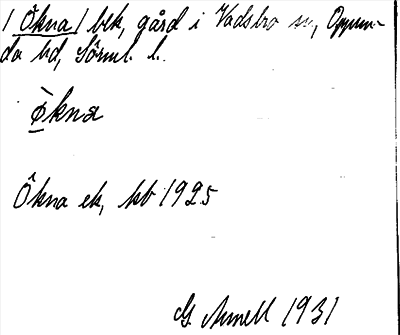 / Ökna / blk, gård i Vadsbro sn, Oppun-
da hd, Sörml. l.
ö̀kna
Ökna ek, kb 1925
G. Arnell 1931